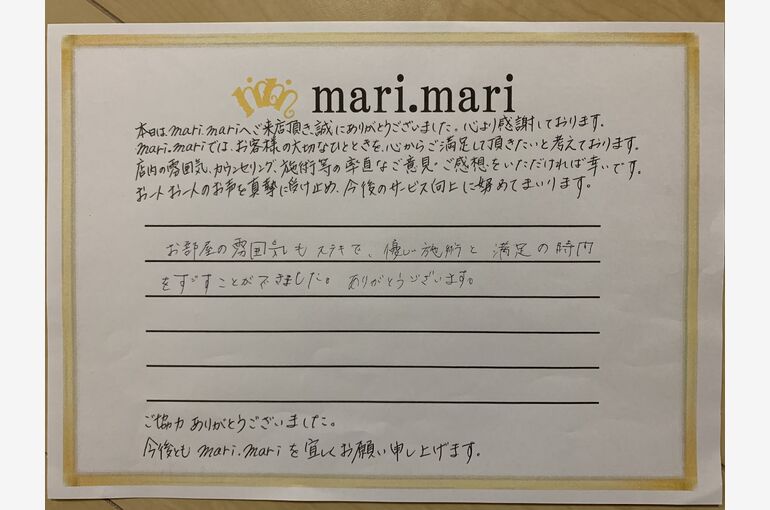 mari.mari
本日はmari.mariへご来店頂き、誠にありがとうございました。心より感謝しております。
mari.mariでは、お客様の大切なひとときを、心からご満足して頂きたいと考えております。
店内の雰囲気、カウンセリング、施術等の率直なご意見・ご感想をいただければ幸いです。
お一人お一人のお声を真摯に受け止め、今後のサービス向上に努めてまいります。
お部屋の雰囲気もステキで、優しい施術と満足の時間
をすごすことができました。ありがとうございます。
ご協力ありがとうございました。
今後とも mari.mari を宜しくお願い申し上げます。